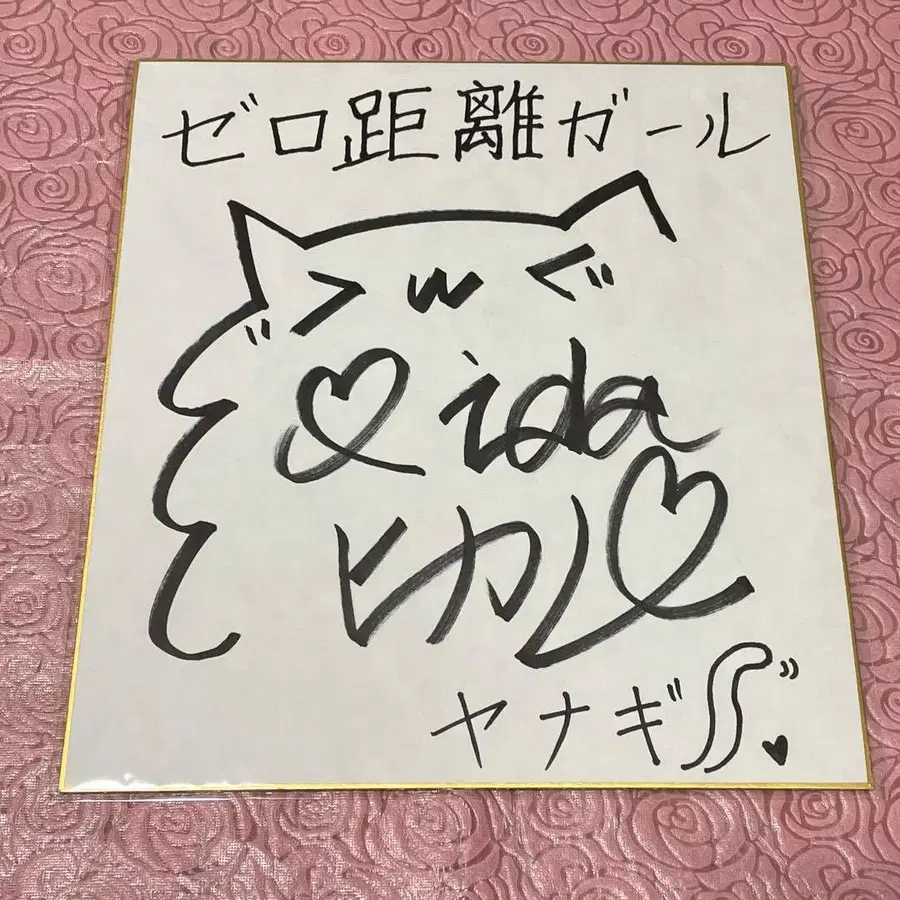 ゼロ距離ガール
♡ida
ヒカル♡
ヤナギ